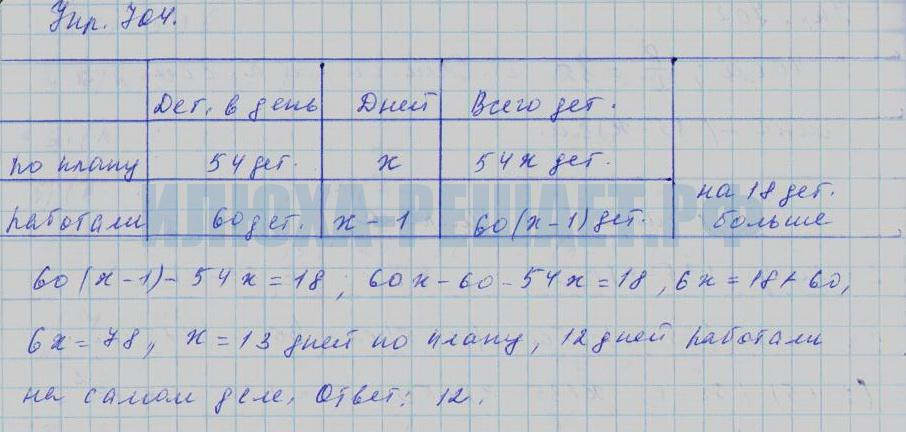 Упр. 704.
Дет. в день Дней Всего дет.
по плану 54 дет. x 54x дет.
на 18 дет.
работали 60 дет. x - 1 60(x-1) дет. больше
ИЛЮХА-РЕШАЕТ.РФ
60(x-1) - 54x = 18; 60x - 60 - 54x = 18, 6x = 18 + 60,
6x = 78, x = 13 дней по плану, 12 дней работали
на самом деле. Ответ: 12.